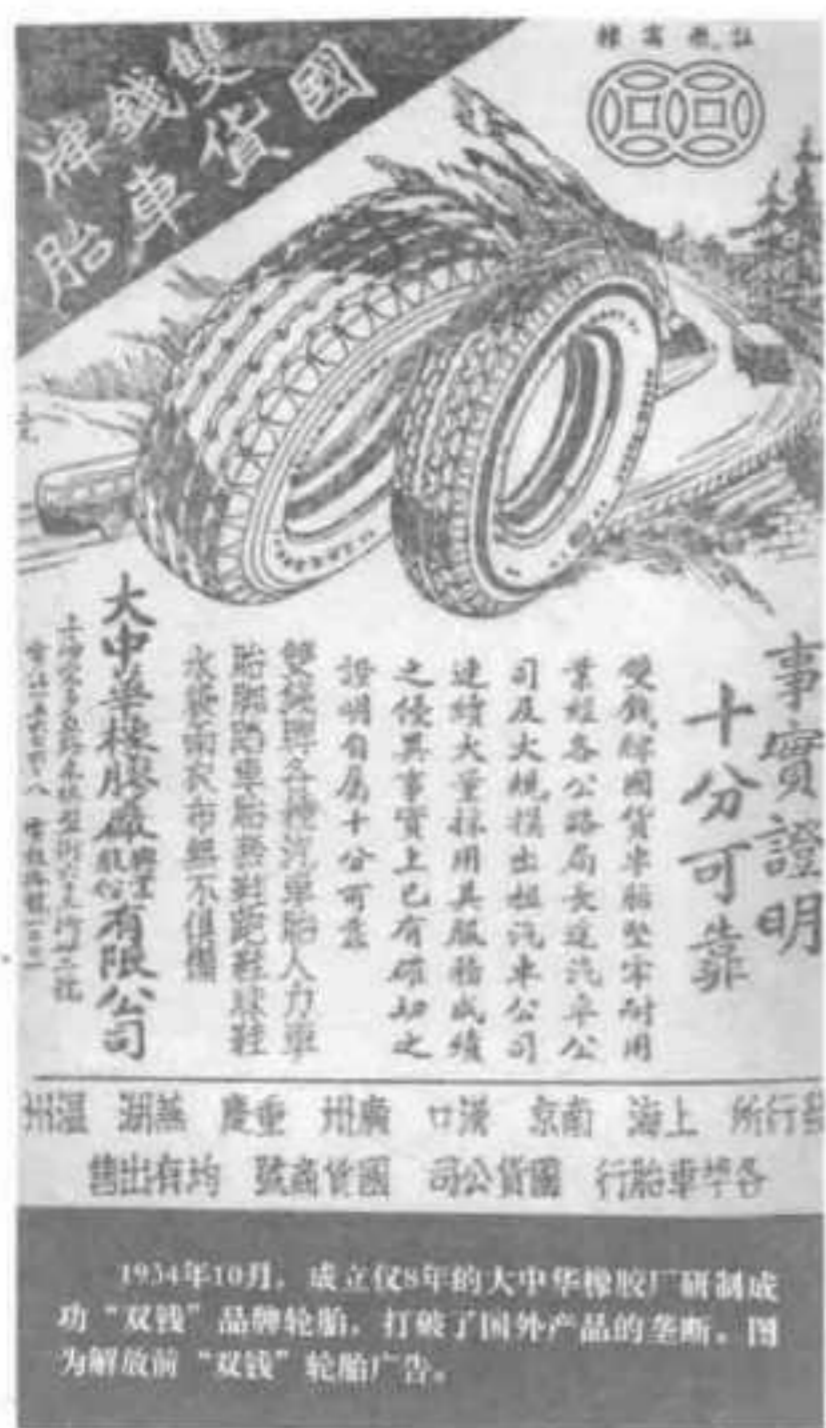 雙錢牌
國貨車胎
事實證明
十分可靠
雙錢牌國貨車胎堅牢耐用
業經各公路局長途汽車公
司及大規模出租汽車公司
連續大量採用其服務成績
之優異事實上已有確切之
證明自屬十分可靠
雙錢牌各種汽車胎人力車
胎腳踏車胎套鞋跑鞋球鞋
水袋雨衣布無不俱備
大中華橡膠廠興業股份有限公司
發行所 上海 南京 漢口 廣州 重慶 蕪湖 溫州
各埠車胎行 國貨公司 國貨商號 均有出售
1934年10月,成立仅8年的大中华橡胶厂研制成
功“双钱”品牌轮胎,打破了国外产品的垄断。图
为解放前“双钱”轮胎广告。